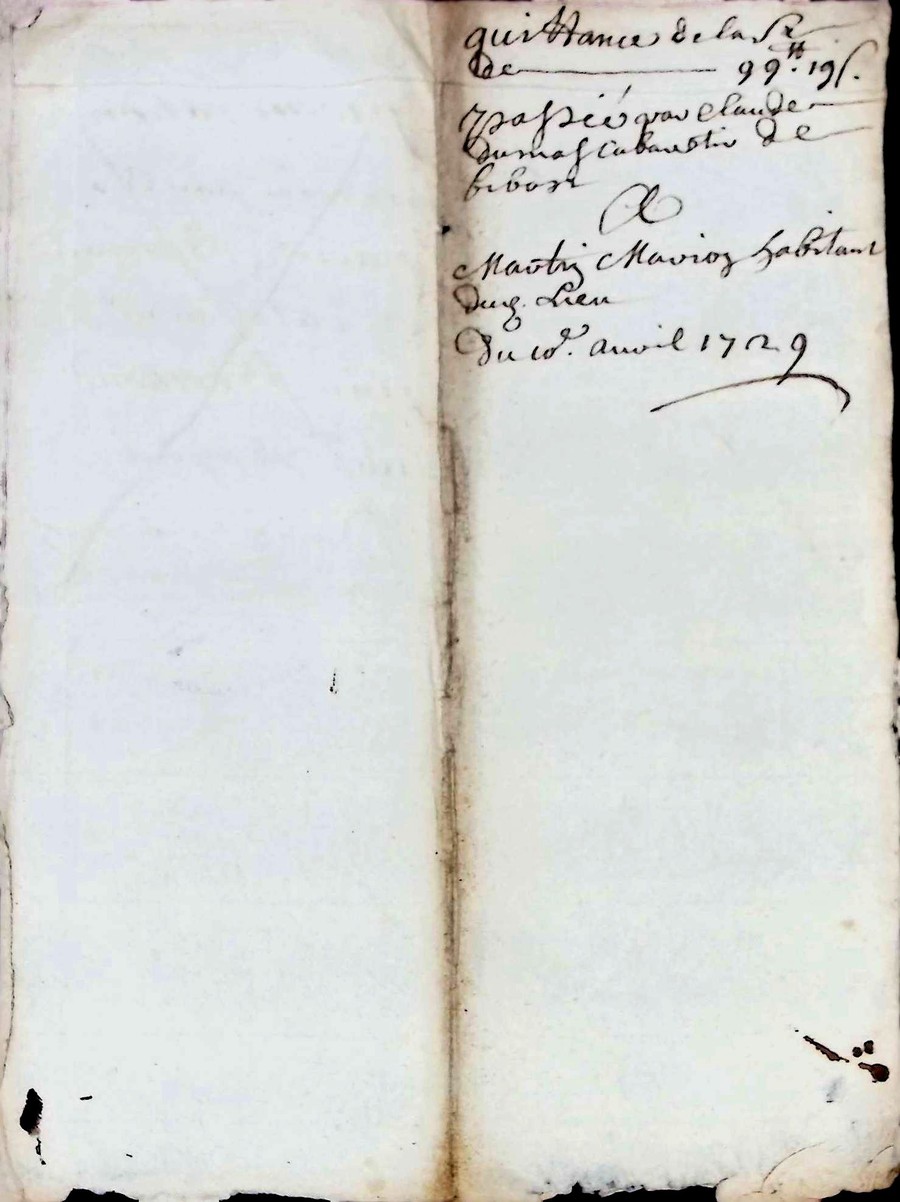 quittance de la S.e
de 99.tt 19 s.
passée par Claude
dumas cabaretier de
bibost
A
Martin Marion habitant
dud. Lieu
Du 10.e auril 1729